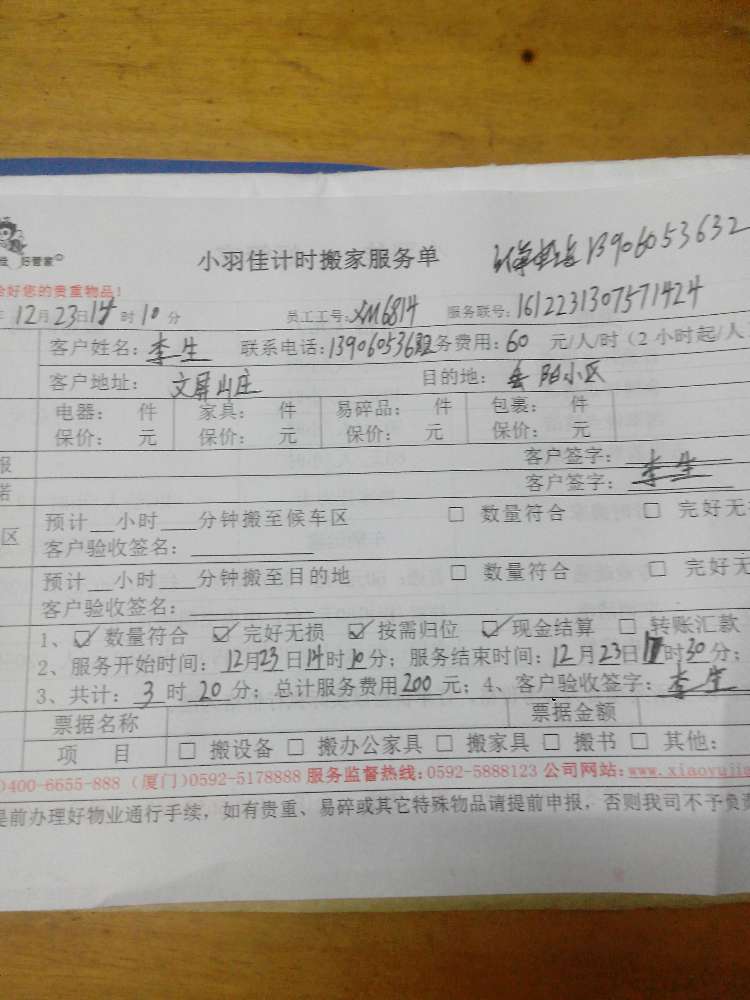 好管家
小羽佳计时搬家服务单 13906053632
好您的贵重物品!
12月23日14时10分 员工工号:XM6814 服务联号:1612231307571424
客户姓名:李生 联系电话:139060536 务费用:60 元/人/时(2小时起/人
客户地址: 文屏山庄 目的地: 岳阳小区
电器: 件 家具: 件 易碎品: 件 包裹: 件
保价: 元 保价: 元 保价: 元 保价: 元
报 客户签字:
诺 客户签字:李生
区 预计__小时___分钟搬至候车区 □ 数量符合 □ 完好无
客户验收签名:
预计__小时___分钟搬至目的地 □ 数量符合 □ 完好无
客户验收签名:
1、☑ 数量符合 ☑ 完好无损 ☑ 按需归位 ☑ 现金结算 □ 转账汇款
2、服务开始时间:12月23日14时10分;服务结束时间:12月23日17时30分;
3、共计:3时20分;总计服务费用200元;4、客户验收签字:李生
票据名称 票据金额
项 目 □ 搬设备 □ 搬办公家具 □ 搬家具 □ 搬书 □ 其他:
)400-6655-888 (厦门)0592-5178888 服务监督热线:0592-5888123 公司网站:www.xiaoyujia
提前办理好物业通行手续,如有贵重、易碎或其它特殊物品请提前申报,否则我司不予负责